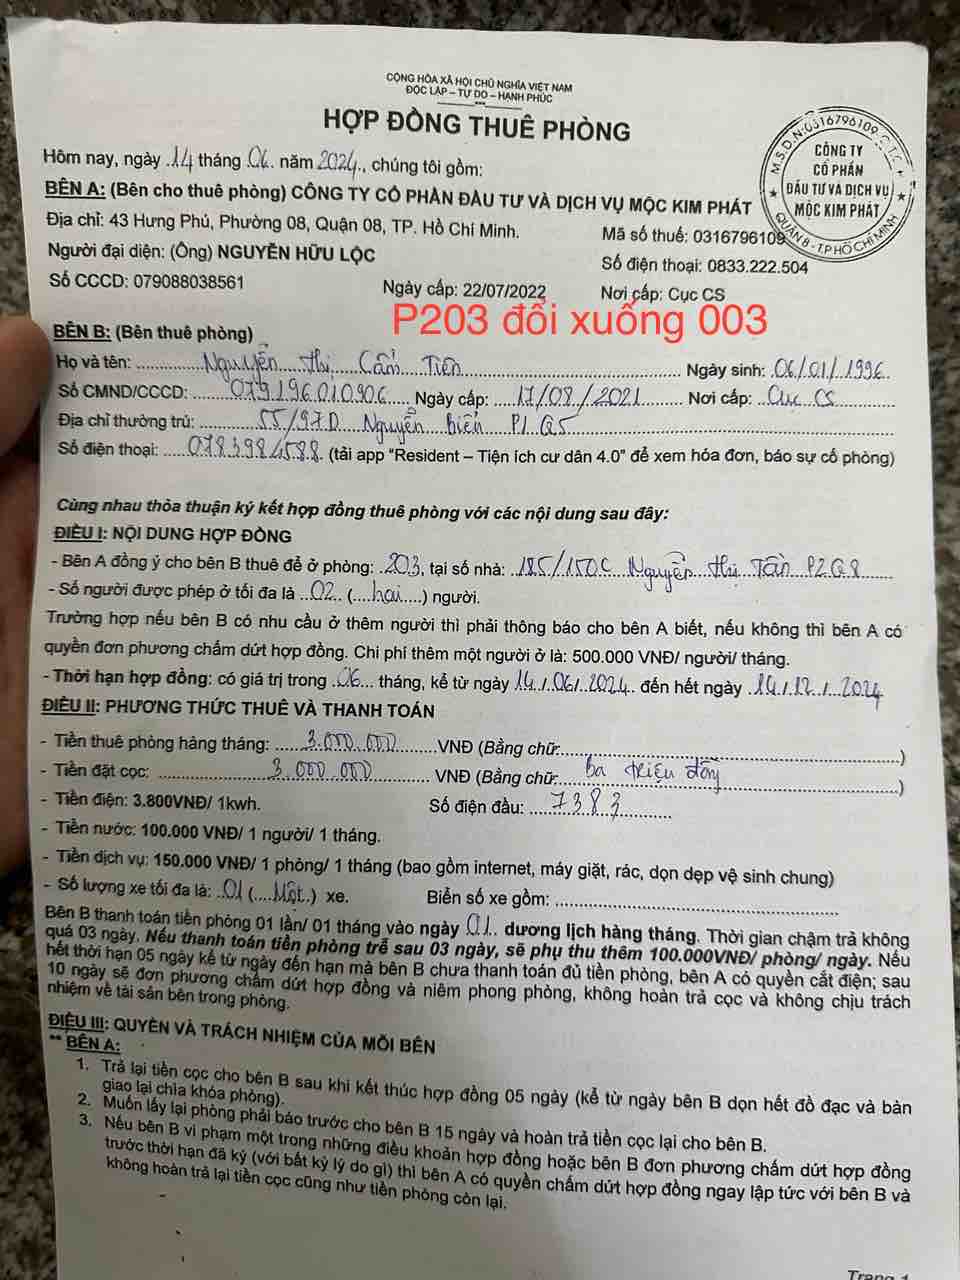 CỘNG HÒA XÃ HỘI CHỦ NGHĨA VIỆT NAM
ĐỘC LẬP – TỰ DO – HẠNH PHÚC
HỢP ĐỒNG THUÊ PHÒNG
M.S.D.N:0316796109
CÔNG TY
CỔ PHẦN
ĐẦU TƯ VÀ DỊCH VỤ
MỘC KIM PHÁT
QUẬN 8 - T.P HỒ CHÍ MINH
Hôm nay, ngày .14 tháng .06. năm 2024., chúng tôi gồm:
BÊN A: (Bên cho thuê phòng) CÔNG TY CỔ PHẦN ĐẦU TƯ VÀ DỊCH VỤ MỘC KIM PHÁT
Địa chỉ: 43 Hưng Phú, Phường 08, Quận 08, TP. Hồ Chí Minh. Mã số thuế: 0316796109
Người đại diện: (Ông) NGUYỄN HỮU LỘC Số điện thoại: 0833.222.504
Số CCCD: 079088038561 Ngày cấp: 22/07/2022 Nơi cấp: Cục CS
P203 đổi xuống 003
BÊN B: (Bên thuê phòng)
Họ và tên: Nguyễn Thị Cẩm Tiên Ngày sinh: 06/01/1996
Số CMND/CCCD: 079196010906 Ngày cấp: 17/08/2021 Nơi cấp: Cục CS
Địa chỉ thường trú: 55/97D Nguyễn Biểu P1 Q5
Số điện thoại: 0783984588. (tải app "Resident – Tiện ích cư dân 4.0" để xem hóa đơn, báo sự cố phòng)
Cùng nhau thỏa thuận ký kết hợp đồng thuê phòng với các nội dung sau đây:
ĐIỀU I: NỘI DUNG HỢP ĐỒNG
- Bên A đồng ý cho bên B thuê để ở phòng: 203, tại số nhà: 185/150C Nguyễn Thị Tần P2 Q8
- Số người được phép ở tối đa là ..02.. (....hai....) người.
Trường hợp nếu bên B có nhu cầu ở thêm người thì phải thông báo cho bên A biết, nếu không thì bên A có
quyền đơn phương chấm dứt hợp đồng. Chi phí thêm một người ở là: 500.000 VNĐ/ người/ tháng.
- Thời hạn hợp đồng: có giá trị trong .06... tháng, kể từ ngày 14./.06/.2024. đến hết ngày .14./.12./.2024
ĐIỀU II: PHƯƠNG THỨC THUÊ VÀ THANH TOÁN
- Tiền thuê phòng hàng tháng: 3.000.000 VNĐ (Bằng chữ: )
- Tiền đặt cọc: 3.000.000 VNĐ (Bằng chữ: Ba triệu đồng )
- Tiền điện: 3.800VNĐ/ 1kwh. Số điện đầu: 7383
- Tiền nước: 100.000 VNĐ/ 1 người/ 1 tháng.
- Tiền dịch vụ: 150.000 VNĐ/ 1 phòng/ 1 tháng (bao gồm internet, máy giặt, rác, dọn dẹp vệ sinh chung)
- Số lượng xe tối đa là: ..01 (....Một..) xe. Biển số xe gồm:
Bên B thanh toán tiền phòng 01 lần/ 01 tháng vào ngày 01.. dương lịch hàng tháng. Thời gian chậm trả không
quá 03 ngày. Nếu thanh toán tiền phòng trễ sau 03 ngày, sẽ phụ thu thêm 100.000VNĐ/ phòng/ ngày. Nếu
hết thời hạn 05 ngày kể từ ngày đến hạn mà bên B chưa thanh toán đủ tiền phòng, bên A có quyền cắt điện; sau
10 ngày sẽ đơn phương chấm dứt hợp đồng và niêm phong phòng, không hoàn trả cọc và không chịu trách
nhiệm về tài sản bên trong phòng.
ĐIỀU III: QUYỀN VÀ TRÁCH NHIỆM CỦA MỖI BÊN
** BÊN A:
1. Trả lại tiền cọc cho bên B sau khi kết thúc hợp đồng 05 ngày (kể từ ngày bên B dọn hết đồ đạc và bàn
giao lại chìa khóa phòng).
2. Muốn lấy lại phòng phải báo trước cho bên B 15 ngày và hoàn trả tiền cọc lại cho bên B.
3. Nếu bên B vi phạm một trong những điều khoản hợp đồng hoặc bên B đơn phương chấm dứt hợp đồng
trước thời hạn đã ký (với bất kỳ lý do gì) thì bên A có quyền chấm dứt hợp đồng ngay lập tức với bên B và
không hoàn trả lại tiền cọc cũng như tiền phòng còn lại.
Trang 1